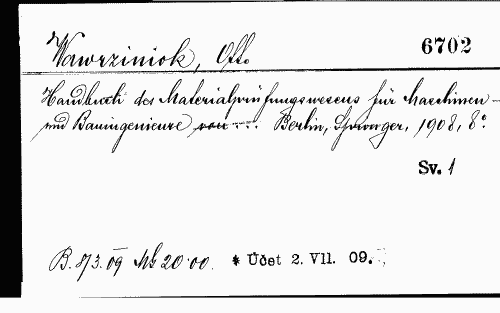 Wawrziniok, Otto
6702
Handbuch des Materialprüfungswesens für Maschinen-
und Bauingenieure von ... Berlin, Springer, 1908, 8°
Sv. 1
B. 8/3. 09 Mk 20·00. * Účet 2. VII. 09.